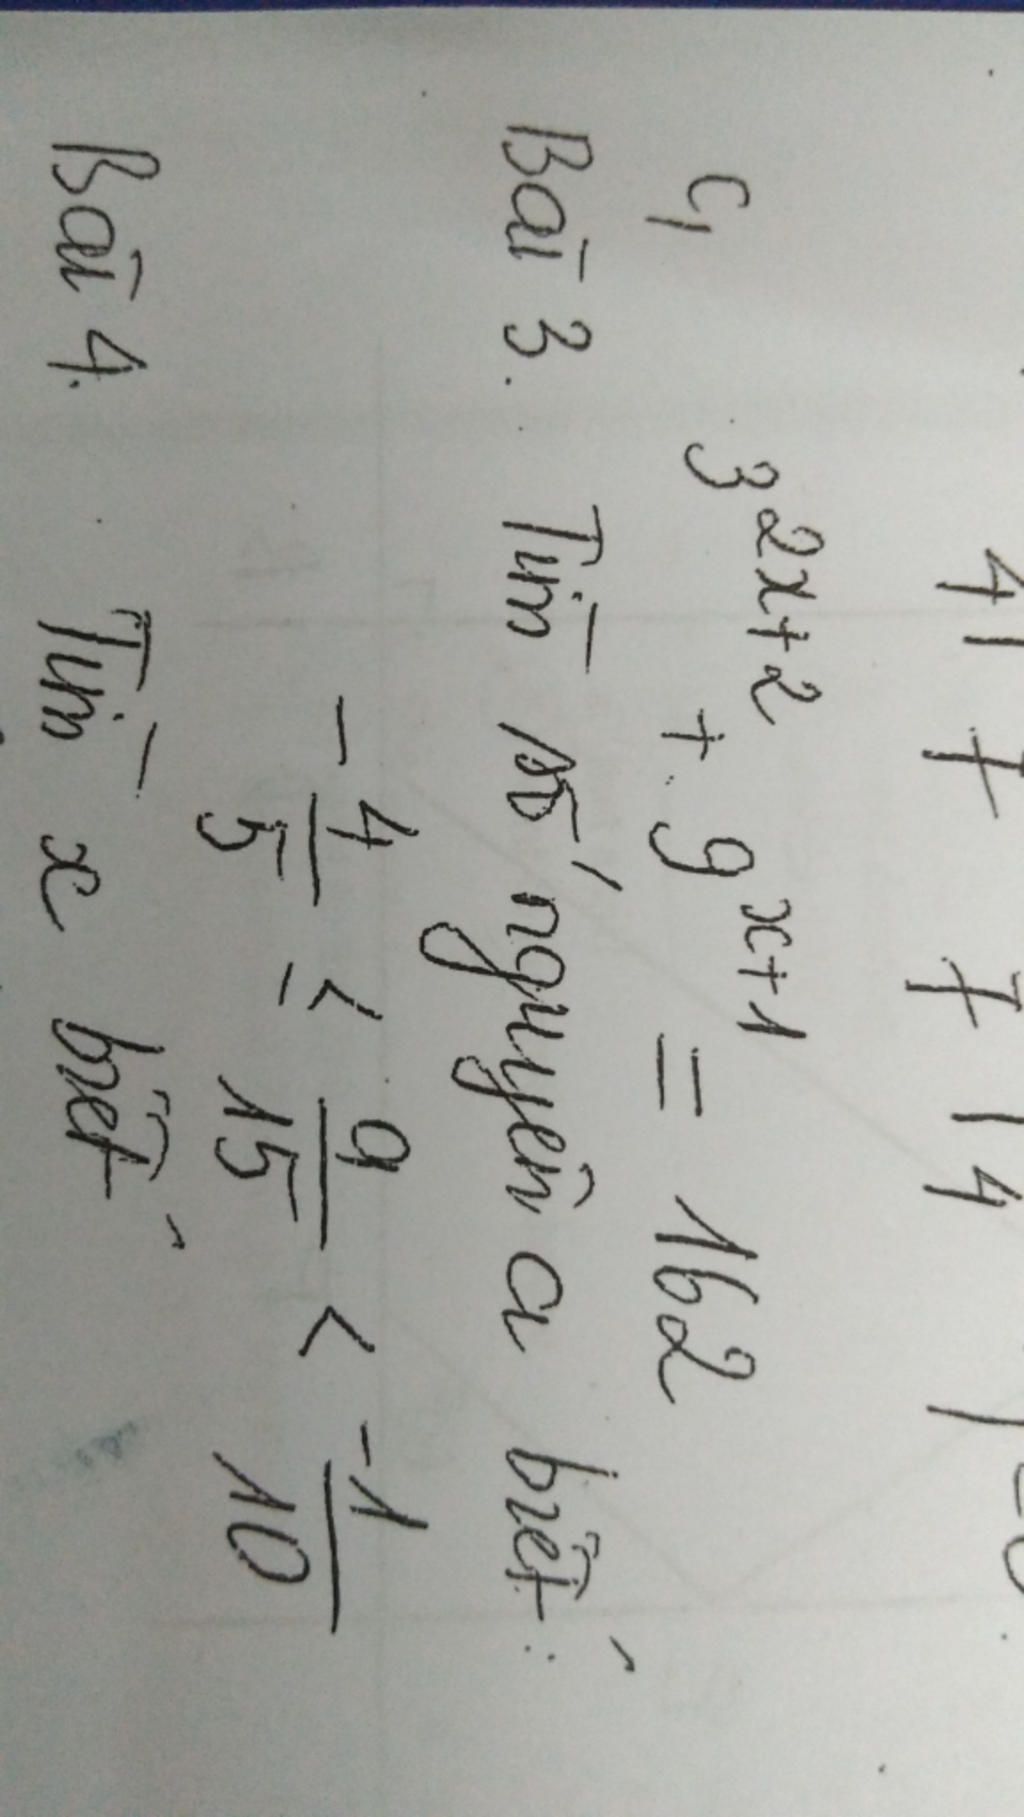 c, 3^{2x+2} + 9^{x+1} = 162
Bài 3. Tìm số nguyên a biết:
-\frac{4}{5} ≤ \frac{a}{15} < \frac{-1}{10}
Bài 4. Tìm x biết